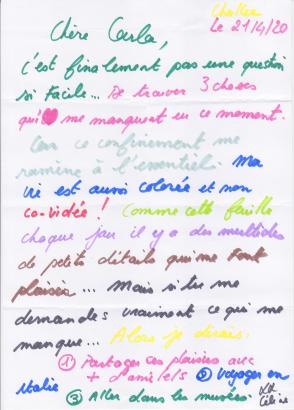 Challex
Le 21/4/20
Chère Carla,
c'est finalement pas une question
si facile... De trouver 3 choses
qui me manquent en ce moment.
Car ce confinement me
ramène à l'essentiel. Ma
vie est aussi colorée et non
co-vidée ! Comme cette feuille
chaque jour il y a des multitudes
de petits détails qui me font
plaisir... Mais si tu me
demandes vraiment ce qui me
manque... Alors je dirais :
① Partager ces plaisirs avec
+ d'ami/e/s ② Voyager en
Italie
③ Aller dans les musées.
Céline